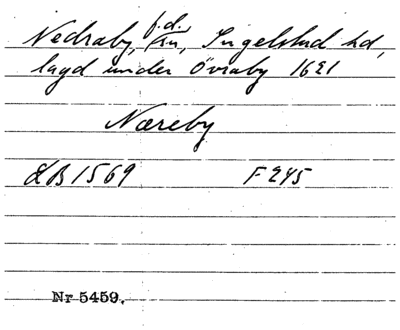 Nedraby, f.d. kn, Ingelstad hd,
lagd under Övraby 1621
Næreby
LB 1569 F 245
Nr 5459.